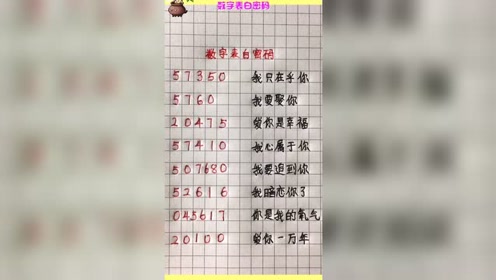 数字表白密码
数字表白密码
57350 我只在乎你
5760 我要娶你
20475 爱你是幸福
57410 我心属于你
507680 我要追到你
52616 我暗恋你了
045617 你是我的氧气
20100 爱你一万年